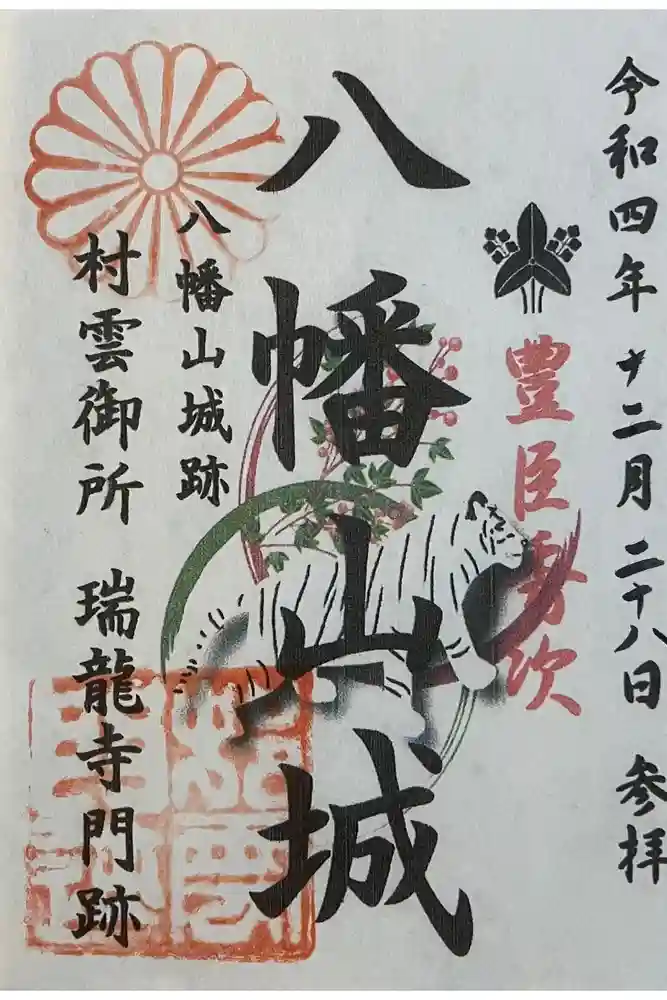 令和四年 十二月 二十八日 参拝
豊臣秀次
八幡山城
八幡山城跡
村雲御所 瑞龍寺門跡